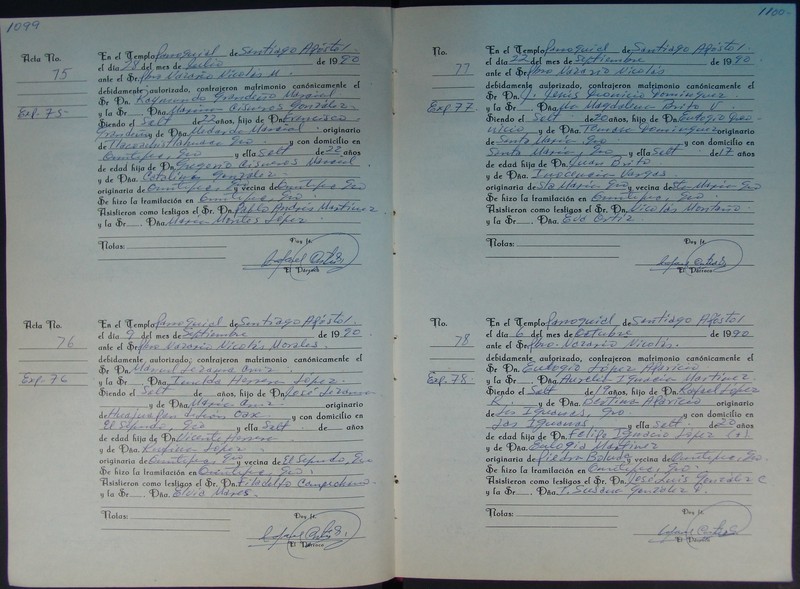 1099
Acta No.
75
Exp. 75
En el Templo Parroquial de Santiago Apóstol.
el día 28 del mes de Julio de 1990
ante el Sr. Pbro Nazario Nicolás M.
debidamente autorizado, contrajeron matrimonio canónicamente el
Sr. Dn. Raymundo Grandeño Marcial
y la Sr. Dña. Cisneros González.
Siendo el Solt de 22 años, hijo de Dn. Francisco
Grandeño y de Dña. Medarda Marcial originario
de Gro y con domicilio en
Ometepec, Gro y ella Solt de 22 años
de edad hija de Dn. Eugenio Cisneros Marcial
y de Dña. Catalina González.
originaria de Ometepec, G y vecina de Ometepec Gro
Se hizo la tramitación en Ometepec, Gro.
Asistieron como testigos el Sr. Dn. Pablo Andrés Martínez
y la Sr. Dña. María Montes López.
Notas:
Doy fe.
El Párroco
Acta No.
76
Exp. 76
En el Templo Parroquial de Santiago Apóstol.
el día 9 del mes de Septiembre de 1990
ante el Sr. Pbro Nazario Nicolás Morales.
debidamente autorizado, contrajeron matrimonio canónicamente el
Sr. Dn. Manuel Lezama
y la Sr. Dña. Imelda Herrera López.
Siendo el Solt de años, hijo de Dn. José Lezama
y de Dña. María originario
de Huajuapan León Oax y con domicilio en
El Gro y ella Solt de años
de edad hija de Dn. Vicente Herrera
y de Dña. Rufina López
originaria de Ometepec, Gro y vecina de El
Se hizo la tramitación en Ometepec, Gro.
Asistieron como testigos el Sr. Dn. Filadelfo
y la Sr. Dña. Elvia Mares.
Notas:
Doy fe.
El Párroco
1100-
No.
77
Exp. 77
En el Templo Parroquial de Santiago Apóstol.
el día 22 del mes de Septiembre de 1990.
ante el Sr. Pbro Nazario Nicolás
debidamente autorizado, contrajeron matrimonio canónicamente el
Sr. Dn. J. Domínguez.
y la Sr. Dña. Ma Magdalena Brito V.
Siendo el Solt de 20 años, hijo de Dn. Eutogio
y de Dña. Domínguez originario
de Santa María, Gro y con domicilio en
Santa María, Gro y ella Solt. de 17 años
de edad hija de Dn. Juan Brito
y de Dña. Inocencia Vargas.
originaria de Sta María, Gro y vecina de Sta María Gro
Se hizo la tramitación en Ometepec, Gro.
Asistieron como testigos el Sr. Dn. Nicolás Montaño
y la Sr. Dña. Eva Ortiz
Notas:
Doy fe.
El Párroco
No.
78
Exp. 78.
En el Templo Parroquial de Santiago Apóstol
el día 6 del mes de Octubre de 1990
ante el Sr. Pbro. Nazario Nicolás.
debidamente autorizado, contrajeron matrimonio canónicamente el
Sr. Dn. Eulogio López Aparicio
y la Sr. Dña. Aurelia Ignacio Martínez
Siendo el Solt de años, hijo de Dn. Rafael López
y de Dña. Aparicio originario
de Las Iguanas, Gro y con domicilio en
Las Iguanas y ella Solt. de 20 años
de edad hija de Dn. Felipe Ignacio López (+)
y de Dña. Eulogia Martínez
originaria de Piedra y vecina de Ometepec, Gro.
Se hizo la tramitación en Ometepec, Gro.
Asistieron como testigos el Sr. Dn. José Luis González C
y la Sr. Dña. T. Susana González G.
Notas:
Doy fe.
El Párroco